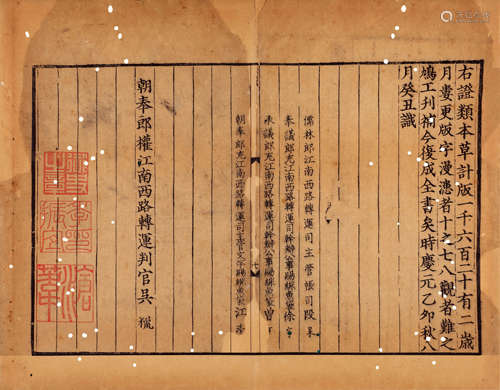 右證類本草計版一千六百二十有二歲
月婁更版字漫漶者十之七八觀者難之
鳩工刊補今復成全書矣時慶元乙卯秋八
月癸丑識
儒林郎江南西路轉運司主管帳司段杲
奉議郎充江南西路轉運司幹辦公事賜緋魚袋徐
承議郎充江南西路轉運司幹辦公事賜緋魚袋曾
朝奉郎充江南西路轉運司主管文字賜緋魚袋江
朝奉郎權江南西路轉運判官吳獵